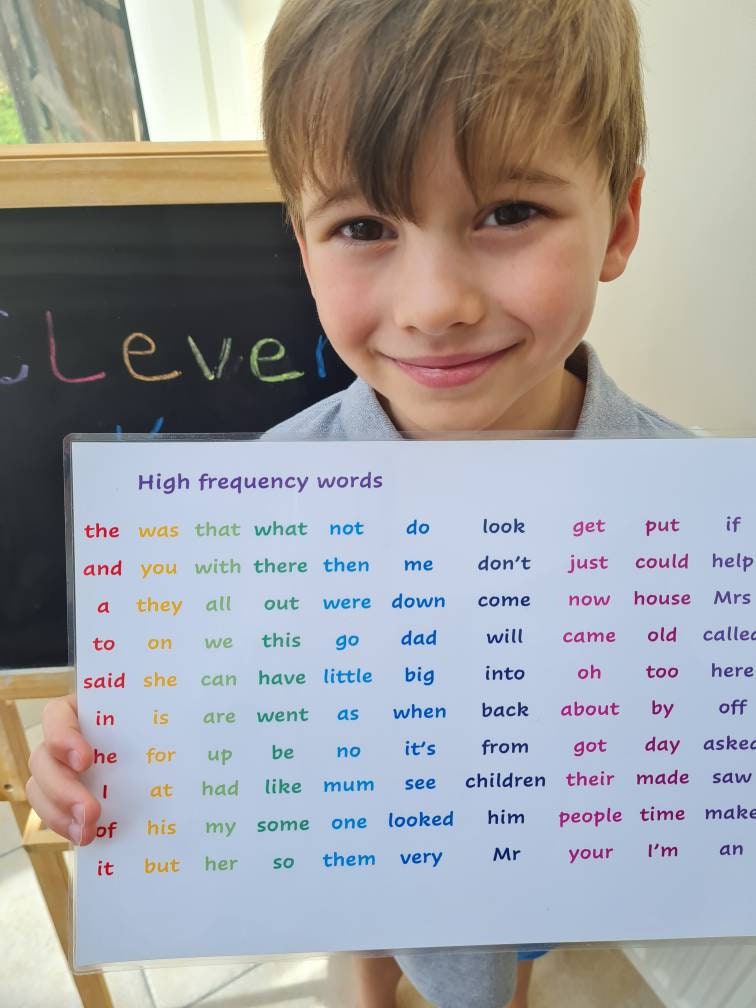 Lever
High frequency words
the was that what not do look get put if
and you with there then me don't just could help
a they all out were down come now house Mrs
to on we this go dad will came old called
said she can have little big into oh too here
in is are went as when back about by off
he for up be no it's from got day asked
I at had like mum see children their made saw
of his my some one looked him people time make
it but her so them very Mr your I'm an